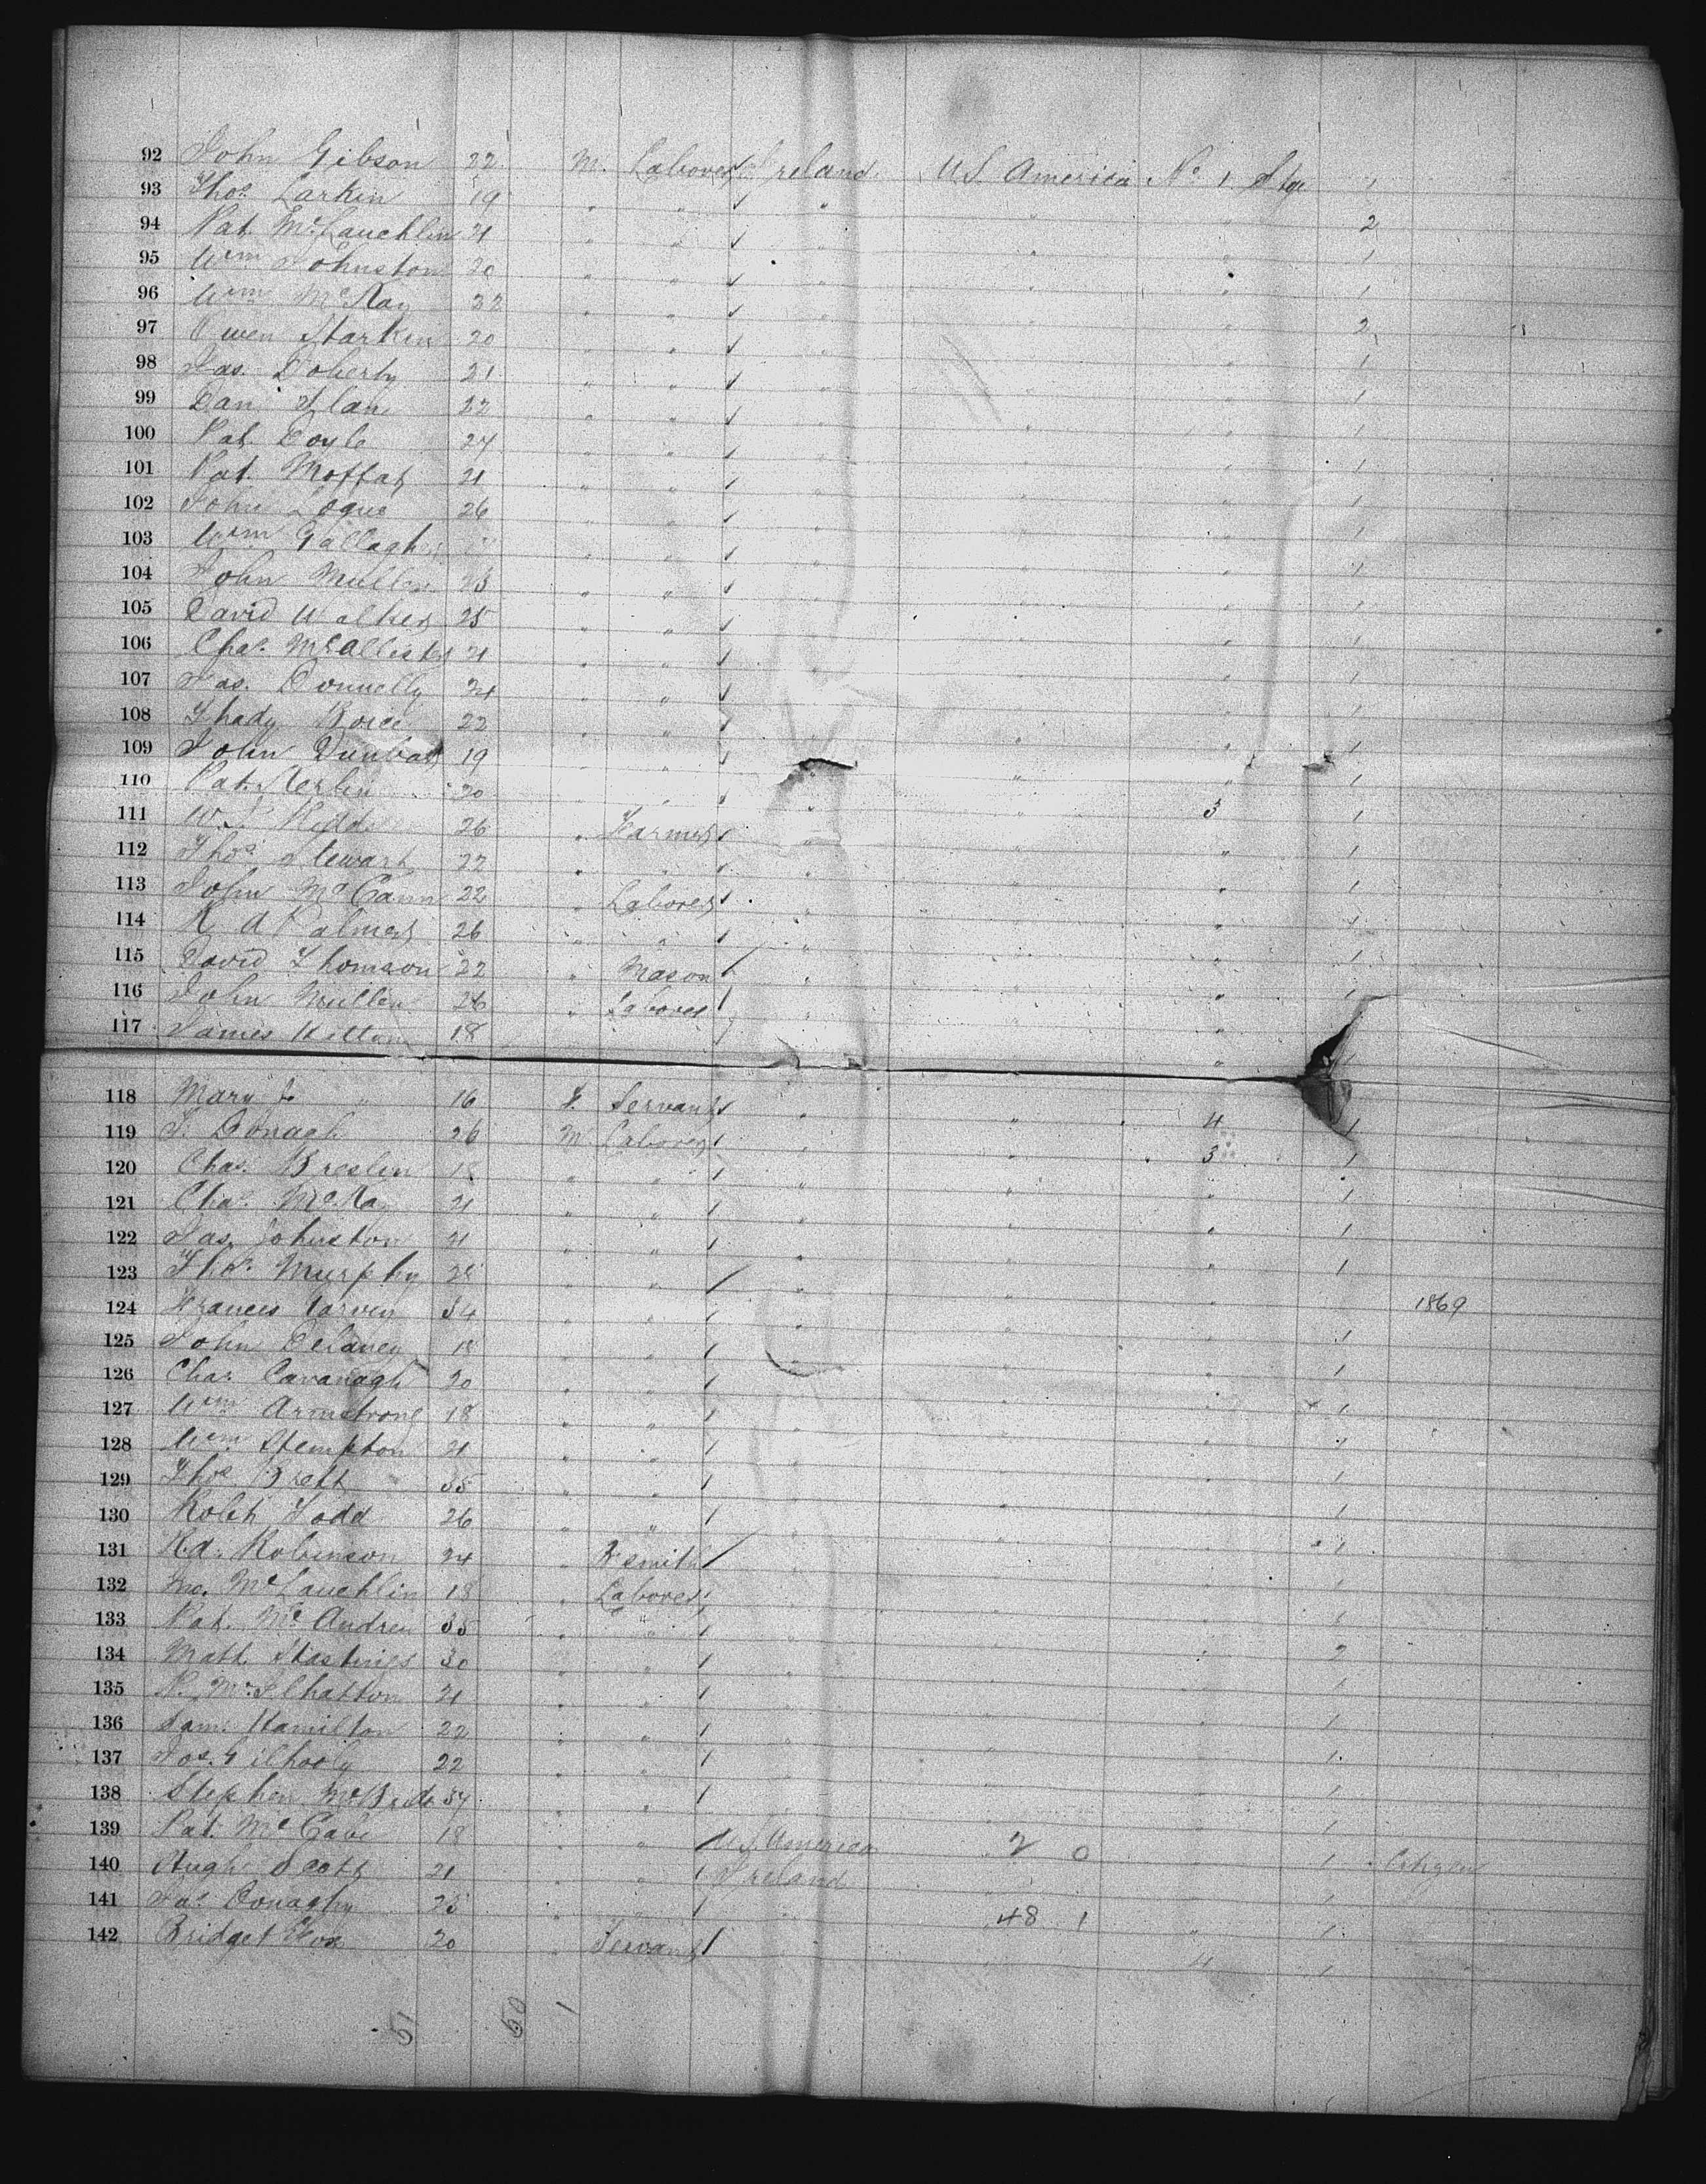 92 John Gibson 22 M. Laborer Ireland U.S. America No. 1 Stge 1
93 Thos. Larkin 19 " " " " " 2
94 Pat. McLauchlin 21 " " " " " 1
95 Wm. Johnston 20 " " " " " 1
96 Wm. McKay 22 " " " " " 2
97 Owen Harkin 20 " " " " 1
98 Jas. Doherty 21 " " " " " 1
99 Dan 22 " " " " " 1
100 Pat. Doyle 24 " " " " " 1
101 Pat. Moffat 21 " " " " " 1
102 John Logue 26 " " " " " 1
103 Wm. Gallagher " " " " " 1
104 John Mullen 23 " " " " 1
105 David Walker 25 " " " " 1
106 Chas. McAllister 21 " " " " 1
107 Jas. Donnelly 24 " " " 1
108 Thady 22 " " " " 1
109 John Dunbar 19 " " " 1
110 Pat. 20 " " " 3 1
111 26 " Farmer " " " 1
112 Thos. Stewart 22 " " " " " 1
113 John McCann 22 " Laborer " " " 1
114 R A Palmer 26 " " " " " 1
115 David Thomson 22 " Mason " " 1
116 John Mullen 26 " Laborer " "
117 James 18 " 1
118 Mary J " 16 F. Servant " " 4 1
119 J. Donagh 26 M Laborer " " 3 1
120 Chas. Breslin 18 " " " " " 1
121 Chas. McKay 21 " " " " 1
122 Jas. Johnston 21 " " " " 1
123 Thos. Murphy 25 " " " "
1869
124 Frances 34 " " " " " 1
125 John Delaney 18 " " " " 1
126 Chas. Cavanagh 20 " " " " 1
127 Wm. Armstrong 18 " " " " 1
128 Wm. 21 " " " " 1
129 Thos. Brett 35 " " " " 1
130 Robt. Todd 26 " " " " 1
131 Rd. Robinson 24 " B smith 1
132 Jno. McLauchlin 18 " Laborer 1
133 Pat. McAndrew 35 " " " 2
134 Matt. Hastings 30 " " " 1
135 21 " " 1
136 Sam. Hamilton 22 " " 1
137 Jos. Gilhooly 22 " " 1
138 Stephen McBride 34 " " 1
139 Pat. McCabe 18 " " U.S. America 2 0 1 Citizen
140 Hugh Scott 21 " " Ireland 1
141 Jas. Donaghy 23 " " 48 1 " 1
142 Bridget Fox 20 " Servant 4 1
51 50 1